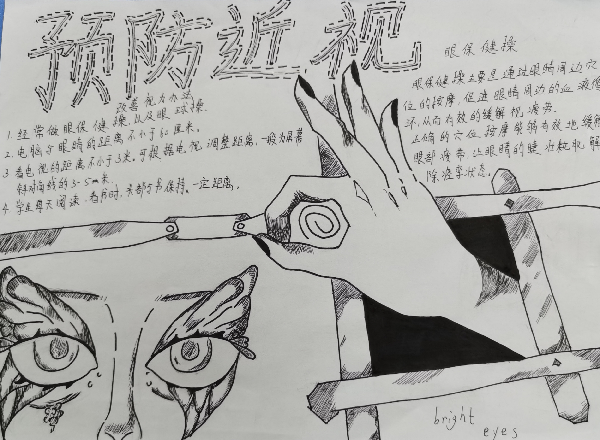 预防近视
改善视力办法
1. 经常做眼保健操,以及眼球操.
2. 电脑与眼睛的距离不小于60厘米。
3. 看电视的距离不小于3米。可根据电视,调整距离,一般为屏幕
斜对角线的3-5m米.
4. 学生每天阅读,看书时,头都与书保持一定距离。
眼保健操
眼保健操主要是通过眼睛周边穴
位的按摩,促进眼周边的血液循
环,从而有效的缓解视疲劳。
正确的穴位按摩能够有效地缓解
眼部疲劳,让眼睛的睫状肌解
除疲劳状态。
bright
eyes